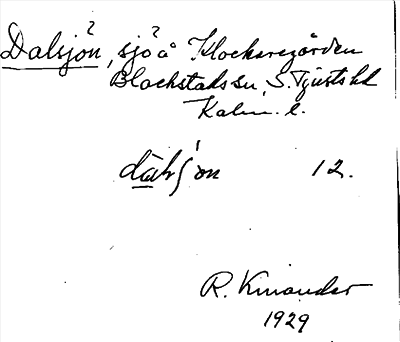 Dalsjön, sjö? å Klockaregården
Blackstads sn, S. Tjusts hd
Kalm. l.
dalsjön 12.
R. Kinander
1929